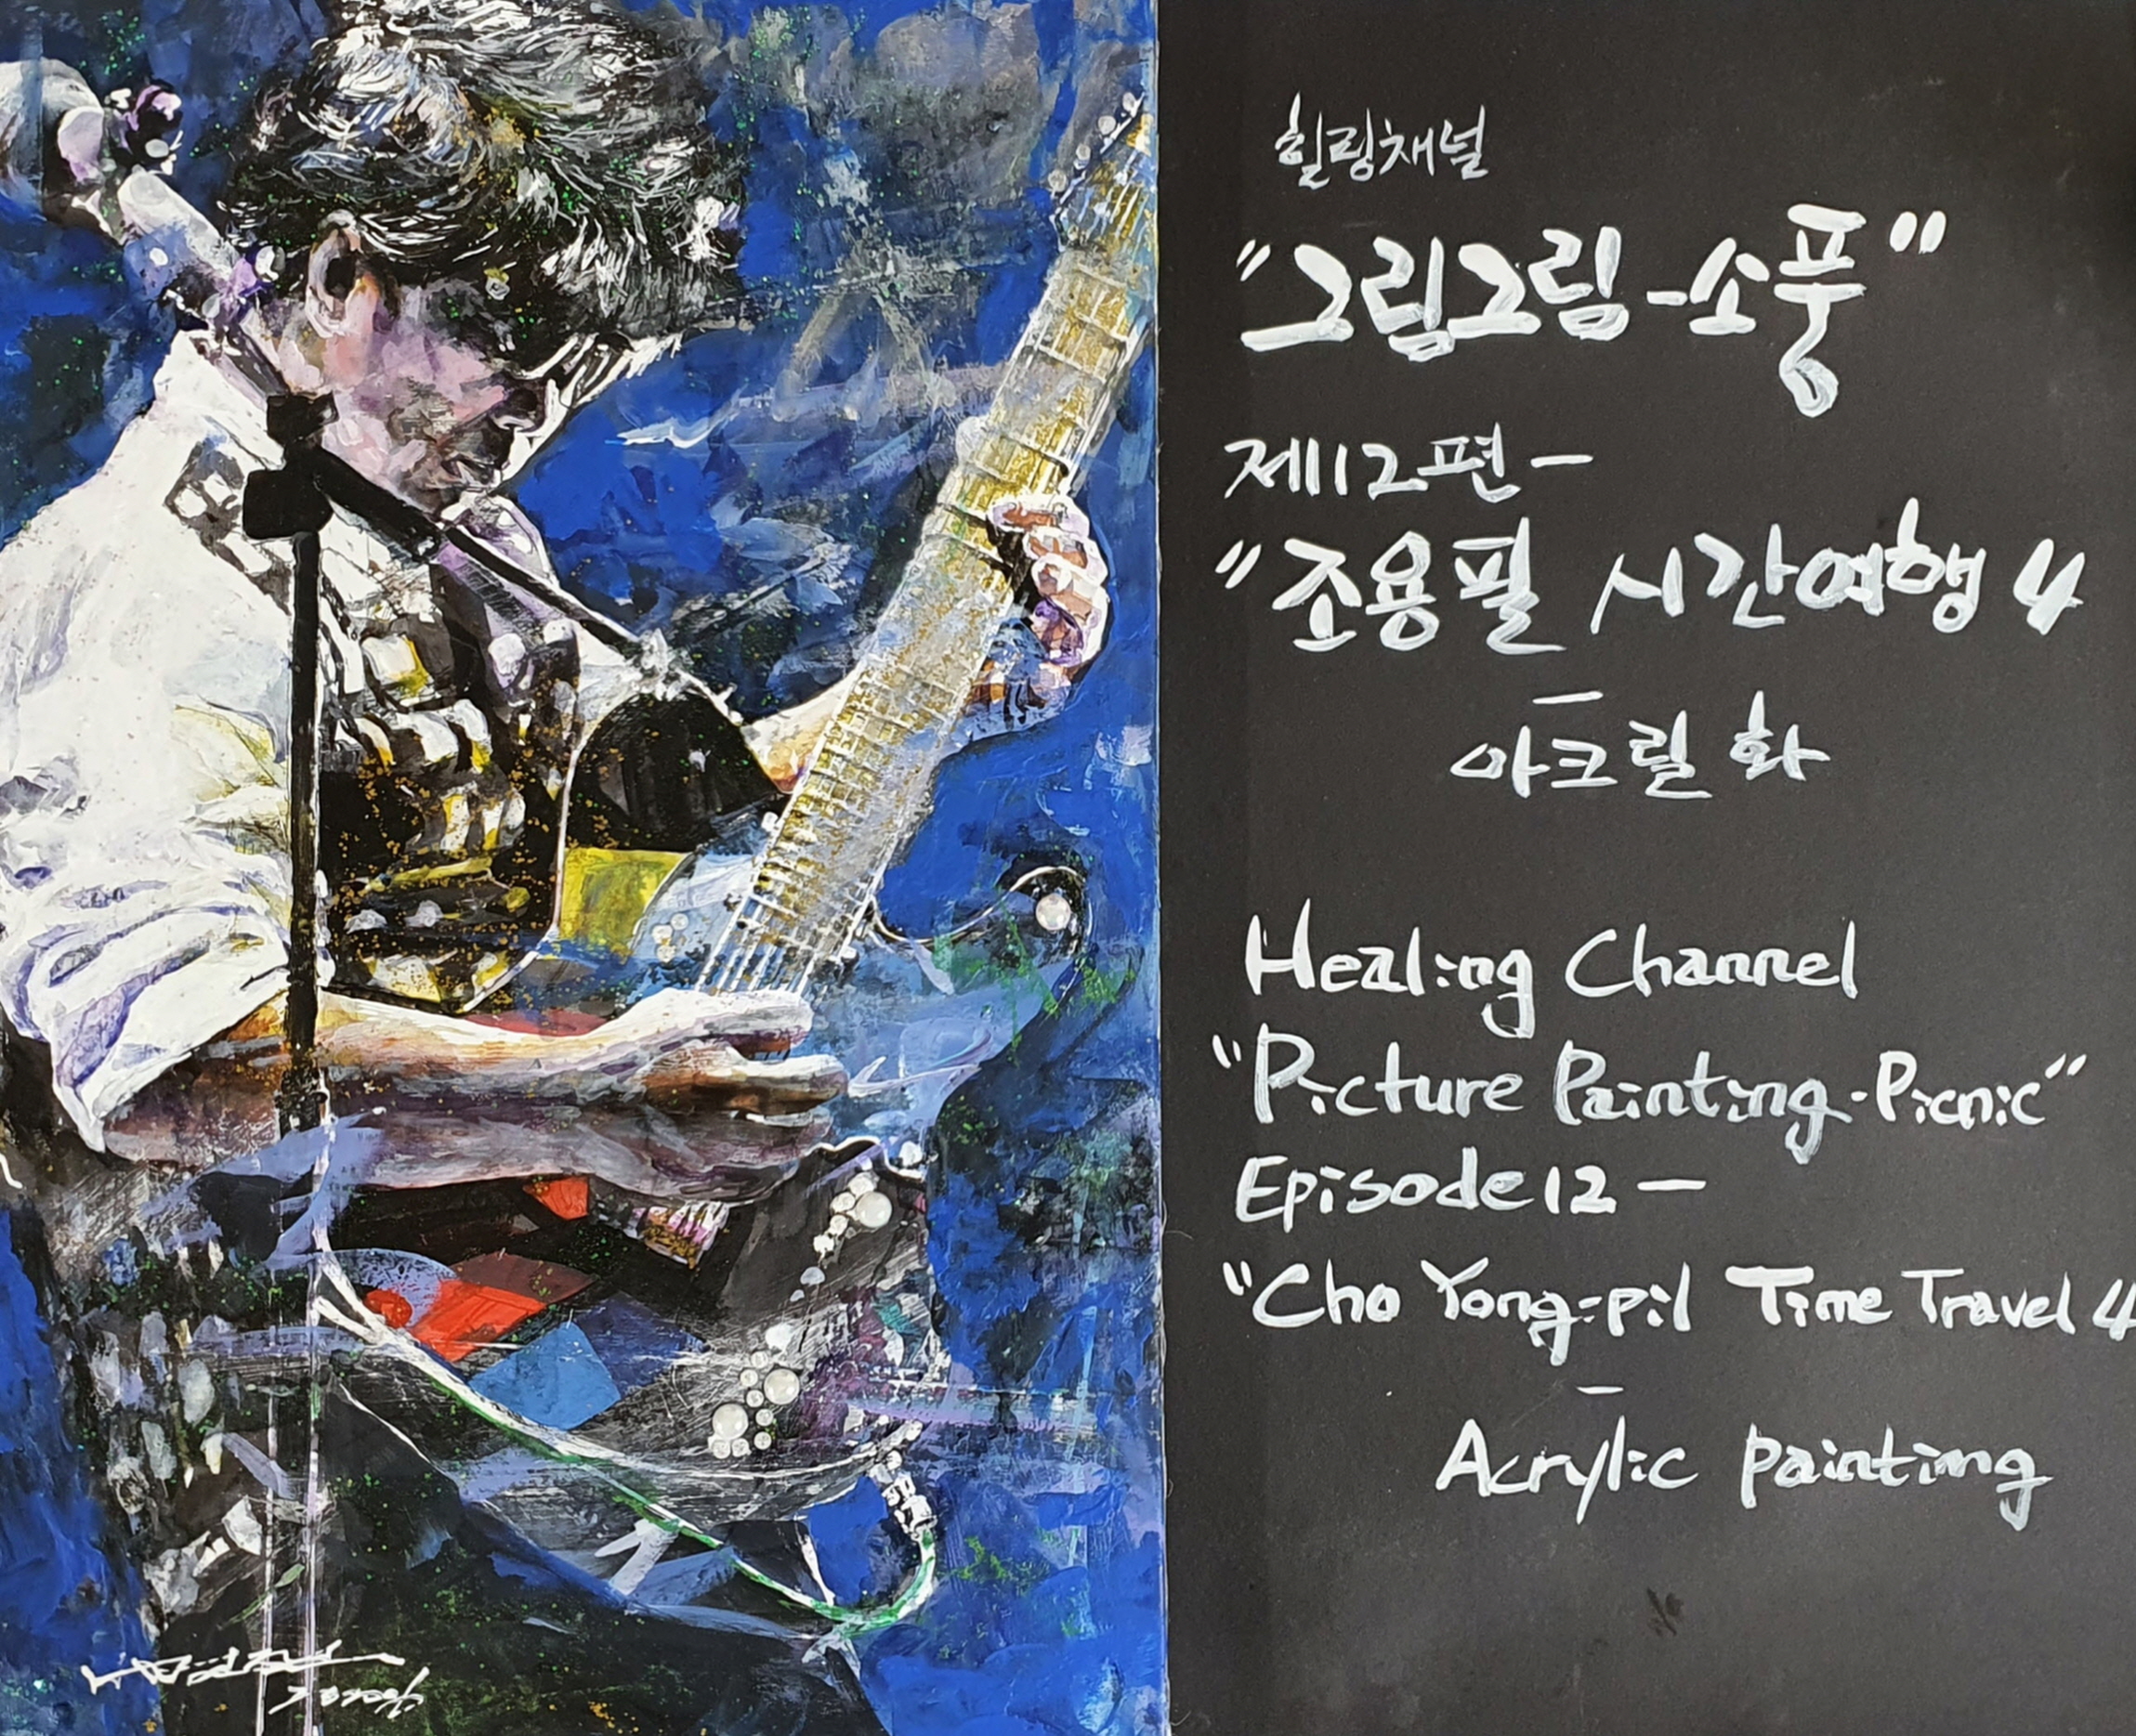 힐링채널
"그림그림-소풍"
제12편-
"조용필 시간여행 4
-
아크릴 화
Healing Channel
"Picture Painting-Picnic"
Episode 12 -
"Cho Yong-pil Time Travel 4
-
Acrylic painting